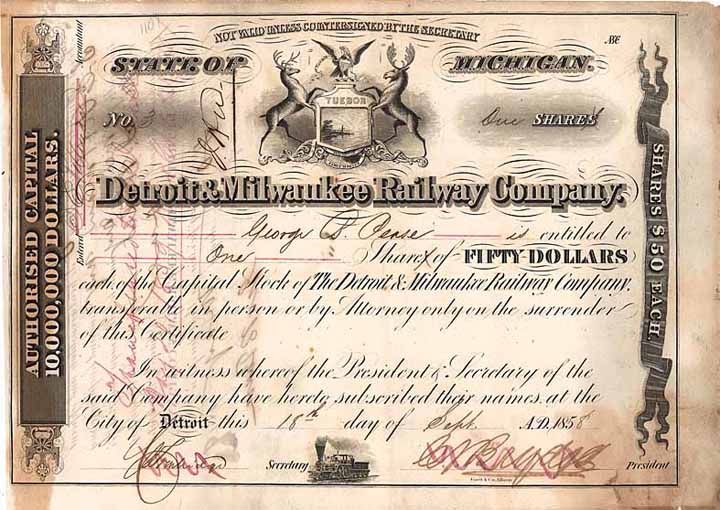 NOT VALID UNLESS COUNTERSIGNED BY THE SECRETARY
STATE OF MICHIGAN.
TUEBOR
No One SHARES
Detroit & Milwaukee Railway Company.
George D. Pease is entitled to
One Shares of FIFTY DOLLARS
each of the Capital Stock of The Detroit & Milwaukee Railway Company.
transferable in person or by Attorney only on the surrender
of this Certificate
In witness whereof the President & Secretary of the
said Company have hereto subscribed their names at the
City of Detroit this 18th day of Sept A.D. 1858
Secretary President
AUTHORISED CAPITAL
10,000,000 DOLLARS.
SHARES $50 EACH.
Entered Accountant